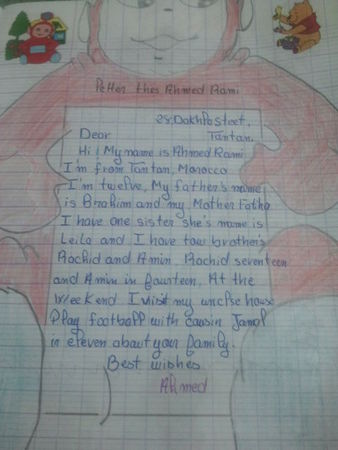 Petter thes Ahmed Rami
28:Dakhla street.
Dear Tantan.
Hi! My name is Ahmed Rami
I'm from Tantan, Morocco
I'm twelve, My father's name
is Brahim and my Mother Fatiha
I have one sister she's name is
Leila and I have tow brother's
Rachid and Amin. Rachid seventeen
and Amin in fourteen. At the
weekend I visit my uncle house
Play football with cousin Jamal
in eleven about your family.
Best wishes
Ahmed